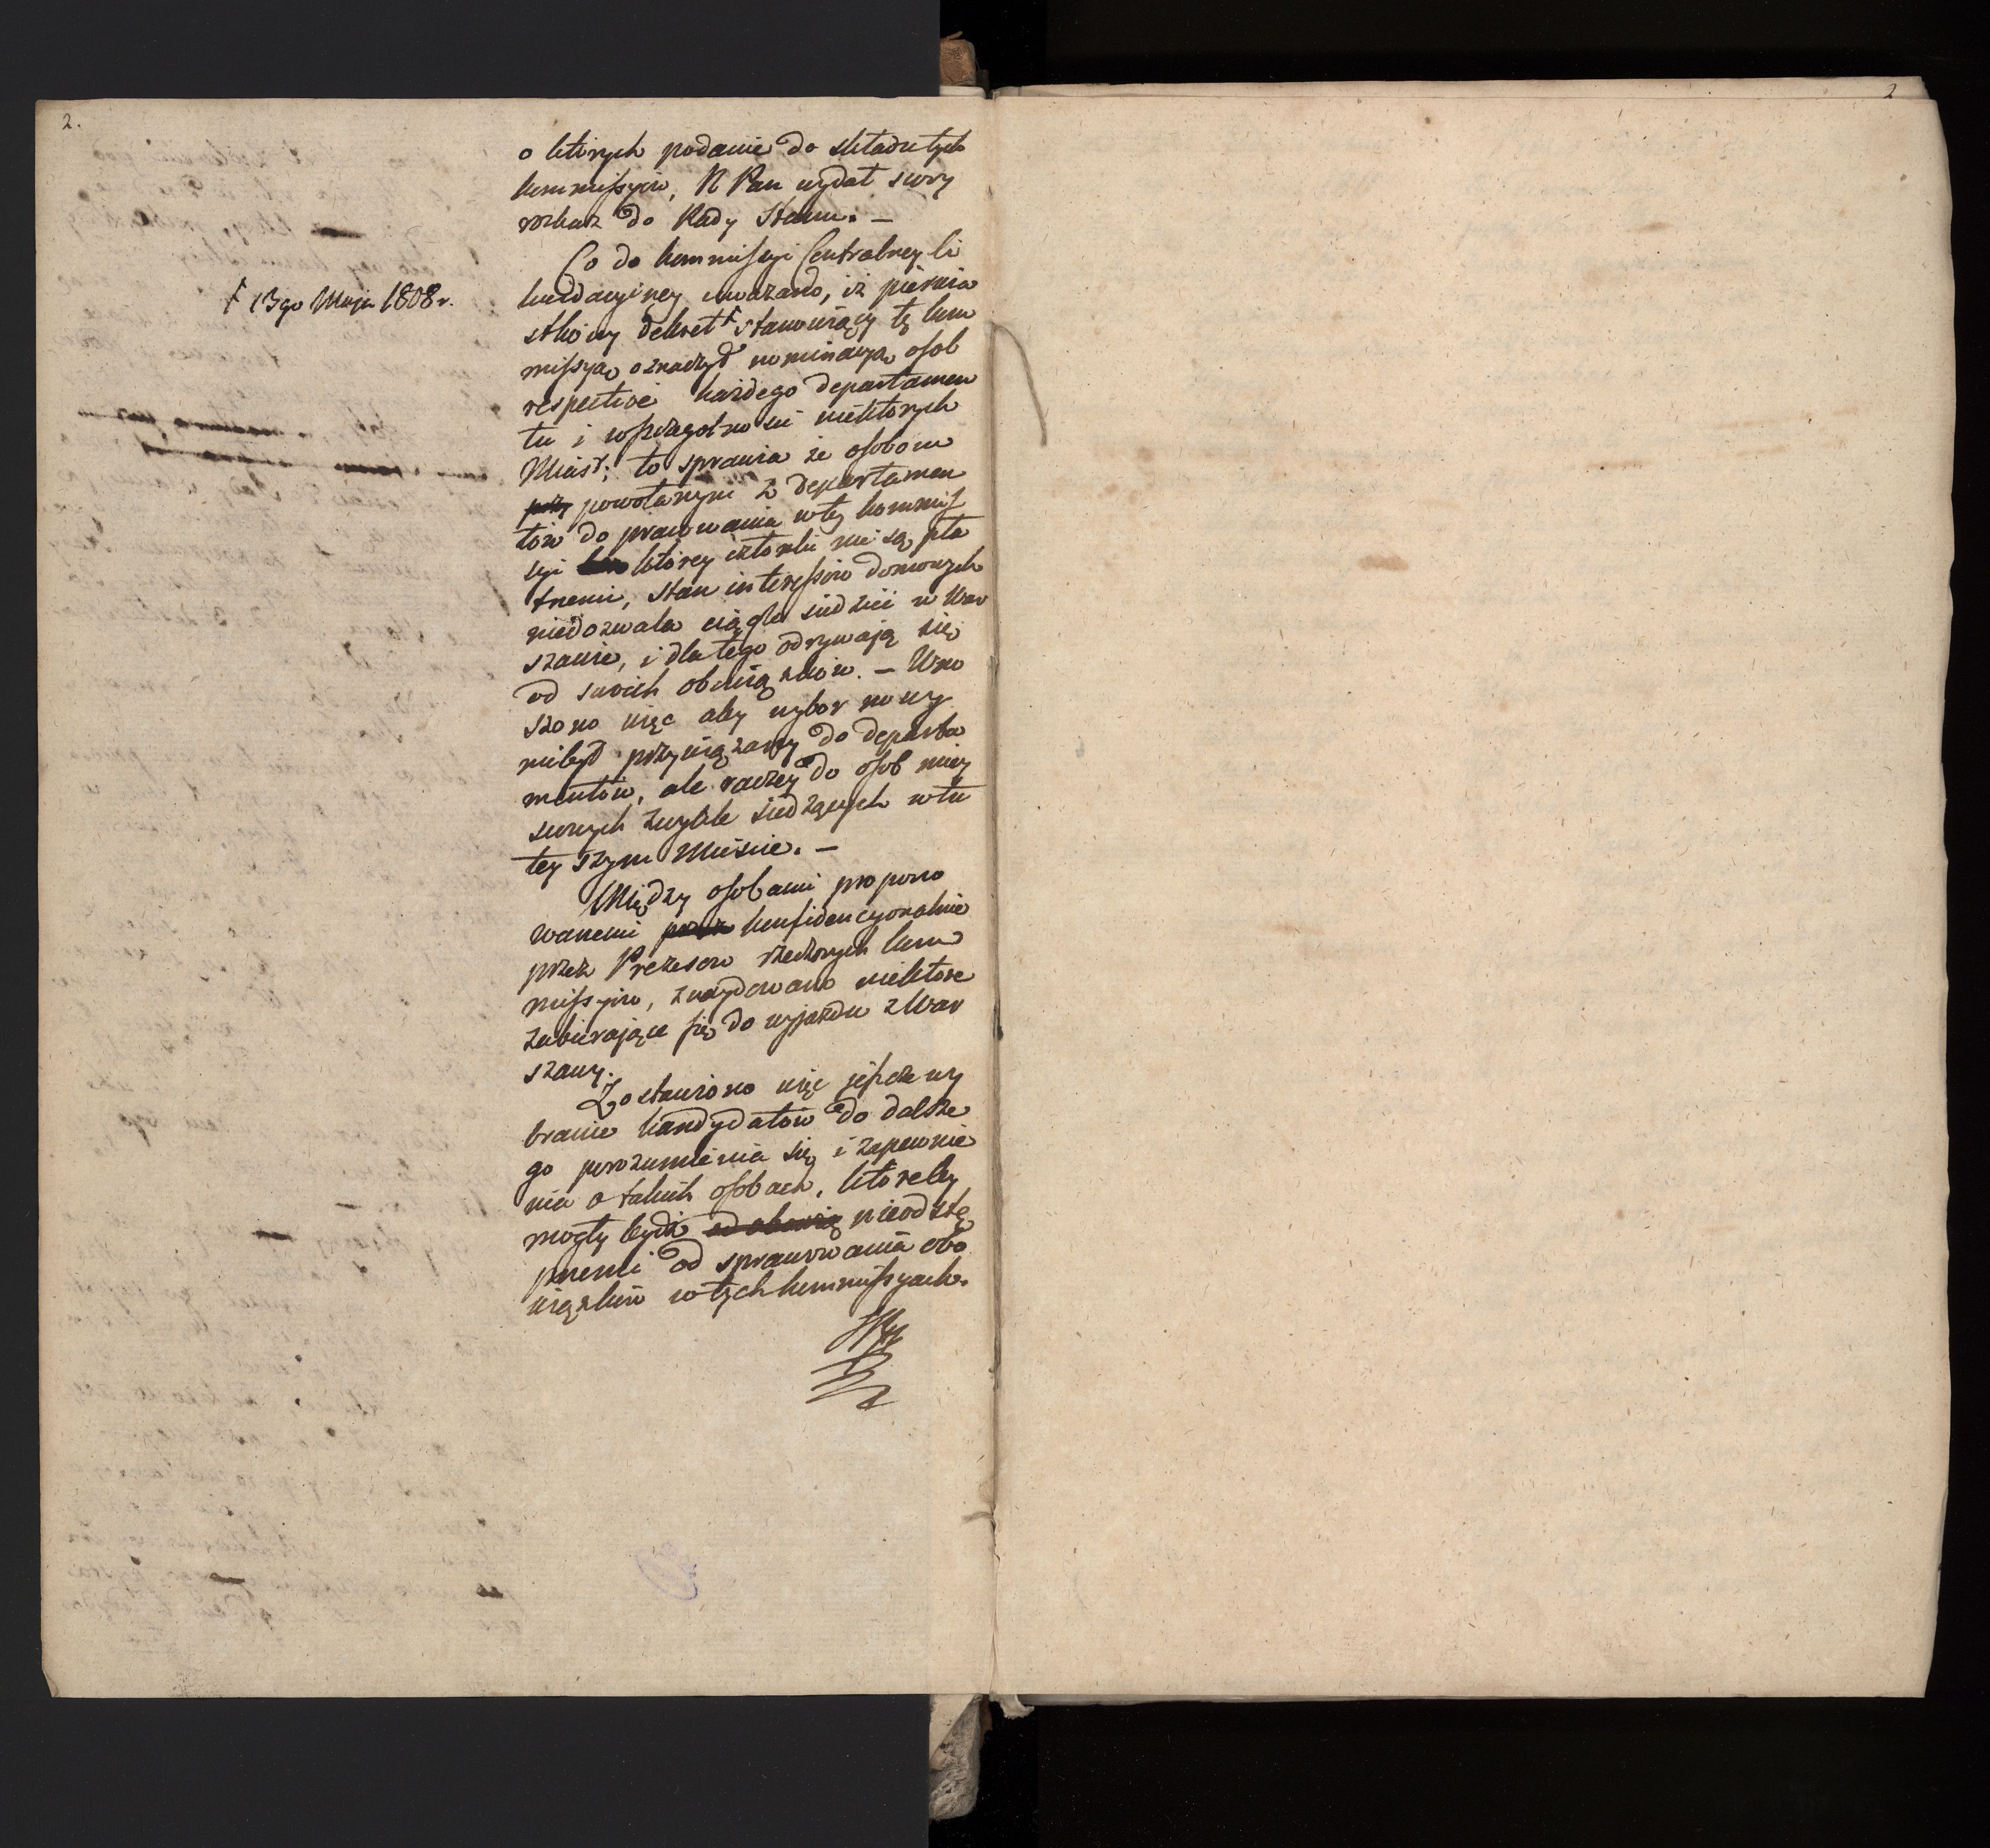 2.
2
o których podanie do składu tych
kommissyiów, N Pan wydał swóy
rozkaz do Rady Stanu. –
Co do kommissyi Centralney li
kwidacyiney uwazano, iż pierwia
stkowy dekret † stanowiący tę kom
† 13go Maja 1808 r.
missyą oznaczył nominacyą osob
respective każdego departamen
tu i w szczegolnosci niektorych
Miast; to sprawia że osobom
przy powołanym z departamen
tów do pracowania w tey kommis
syi którey członki nie są pła
tnemi, stan interessów domowych
niedozwala ciągle siedzieć w War
szawie, i dla tego odrywają się
od swoich obwiązków. – Wno
szono więc aby wybor nowy
niebył przywiązany do departa
mentów, ale raczey do osob miey
scowych zwykle siedzących w tu
teyszym Mieście. –
Między osobami propono
wanemi przez konfidencyonalnie
przez Prezesow rzeczonych kom
missyiów, znaydowano niektóre
zabierające się do wyjazdu z War
szawy.
Zostawiono więc jeszcze wy
branie kandydatów do dalsze
go porozumienia się i zapewnie
nia o takich osobach, któreby
mogły bydź od obowią nieodstę
pnemi od sprawowania obo
wiązków w tych kommissyach.